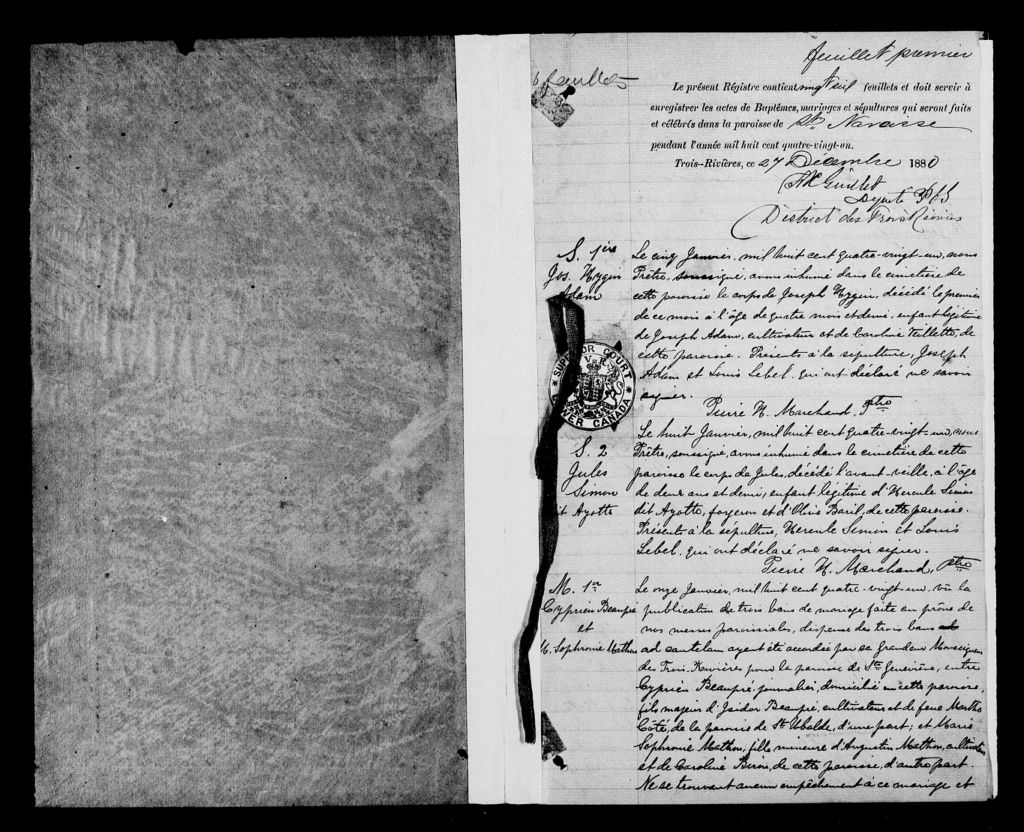 feuillet premier
6 feuillets
Le présent Régistre contient vingt feuillets et doit servir à
enregistrer les actes de Baptêmes, mariages et sépultures qui seront faits
et célébrés dans la paroisse de St. Narcisse
pendant l'année mil huit cent quatre-vingt-un.
Trois--Rivières, ce 27 Décembre 1880
Député
District des Trois Rivières
S. 1ère
Jos. Hygin
Adam
Le cinq Janvier, mil huit cent quatre-vingt-un, nous
Prêtre, soussigné, avons inhumé dans le cimetière de
cette paroisse le corps de Joseph Hygin, décédé le premier
de ce mois à l'âge de quatre mois et demi, enfant légitime
de Joseph Adam, cultivateur et de Caroline Veillette, de
cette paroisse. Présents à la sépulture, Joseph
Adam et Louis Lebel qui ont déclaré ne savoir
signer.
Pierre H. Marchand, Ptre
SUPERIOR COURT
V R
LOWER CANADA
S. 2
Jules
Simon
dit Ayotte
Le huit Janvier, mil huit cent quatre-vingt-un, nous
Prêtre, soussigné, avons inhumé dans le cimetière de cette
paroisse le corps de Jules, décédé l'avant-veille, à l'âge
de deux ans et demi, enfant légitime d'Hercule Simon
dit Ayotte, forgeron et d'Olive Baril, de cette paroisse.
Présents à la sépulture, Hercule Simon et Louis
Lebel qui ont déclaré ne savoir signer.
Pierre H. Marchand, Ptre
M. 1er
Cyprien Beaupré
et
M. Sophronie Mathon
Le onze Janvier, mil huit cent quatre-vingt-un, vû la
publication de trois bans de mariage faite au prône de
nos messes paroissiales, dispense des trois bans
ad cautelam ayant été accordée par sa Grandeur Monseigneur
des Trois-Rivières pour la paroisse de Ste Geneviève, entre
Cyprien Beaupré, journalier, domicilié en cette paroisse,
fils majeur d'Isidor Beaupré, cultivateur et de feue Marthe
Côté, de la paroisse de St Ubalde, d'une part; et Marie
Sophronie Mathon, fille mineure d'Augustin Mathon, cultivateur
et de Caroline, de cette paroisse, d'autre part.
Ne se trouvant aucun empêchement à ce mariage et